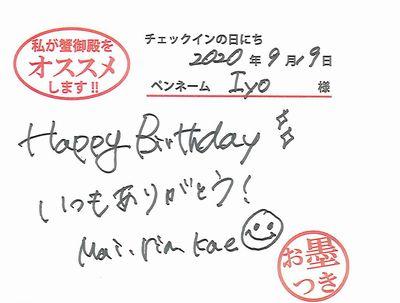 私が蟹御殿を
オススメ
します!!
チェックインの日にち
2020年9月19日
ペンネーム Iyo 様
Happy Birthday
いつもありがとう!
Mai. Rim Kae
お墨
つき